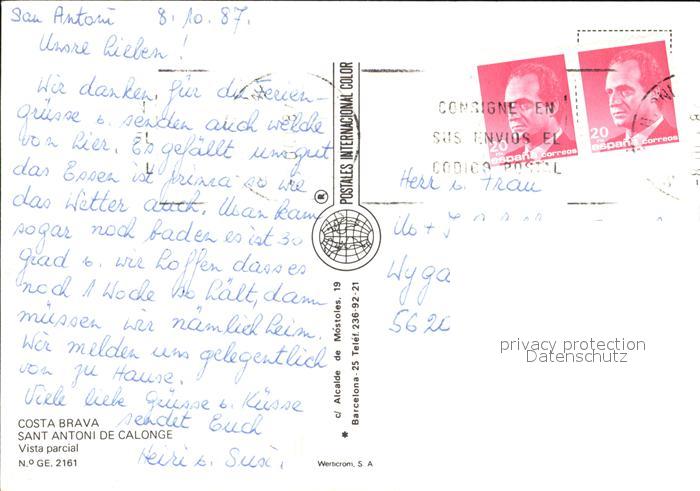 San Antoni 8.10.87.
Unsre Lieben!
Wir danken für die Ferien-
grüsse u. senden auch welche
von hier. Es gefällt uns gut
das Essen ist prima so wie
das Wetter auch. Man kann
sogar noch baden es ist 30
Grad u. wir hoffen dass es
noch 1 Woche so hält, dann
müssen wir nämlich heim.
Wir melden uns gelegentlich
von zu Hause.
Viele liebe Grüsse u. Küsse
sendet Euch
Heiri u. Susi.
COSTA BRAVA
SANT ANTONI DE CALONGE
Vista parcial
N.º GE. 2161
POSTALES INTERNACIONAL COLOR
®
c/ Alcalde de Móstoles, 19
Barcelona-25 Teléf. 236-92-21
Wertcrom, S A
CONSIGNE EN
SUS ENVIOS EL
CODIGO POSTAL
20
PTA
españa correos
20
PTA
españa correos
Herr u. Frau
Wyga
5620
privacy protection
Datenschutz